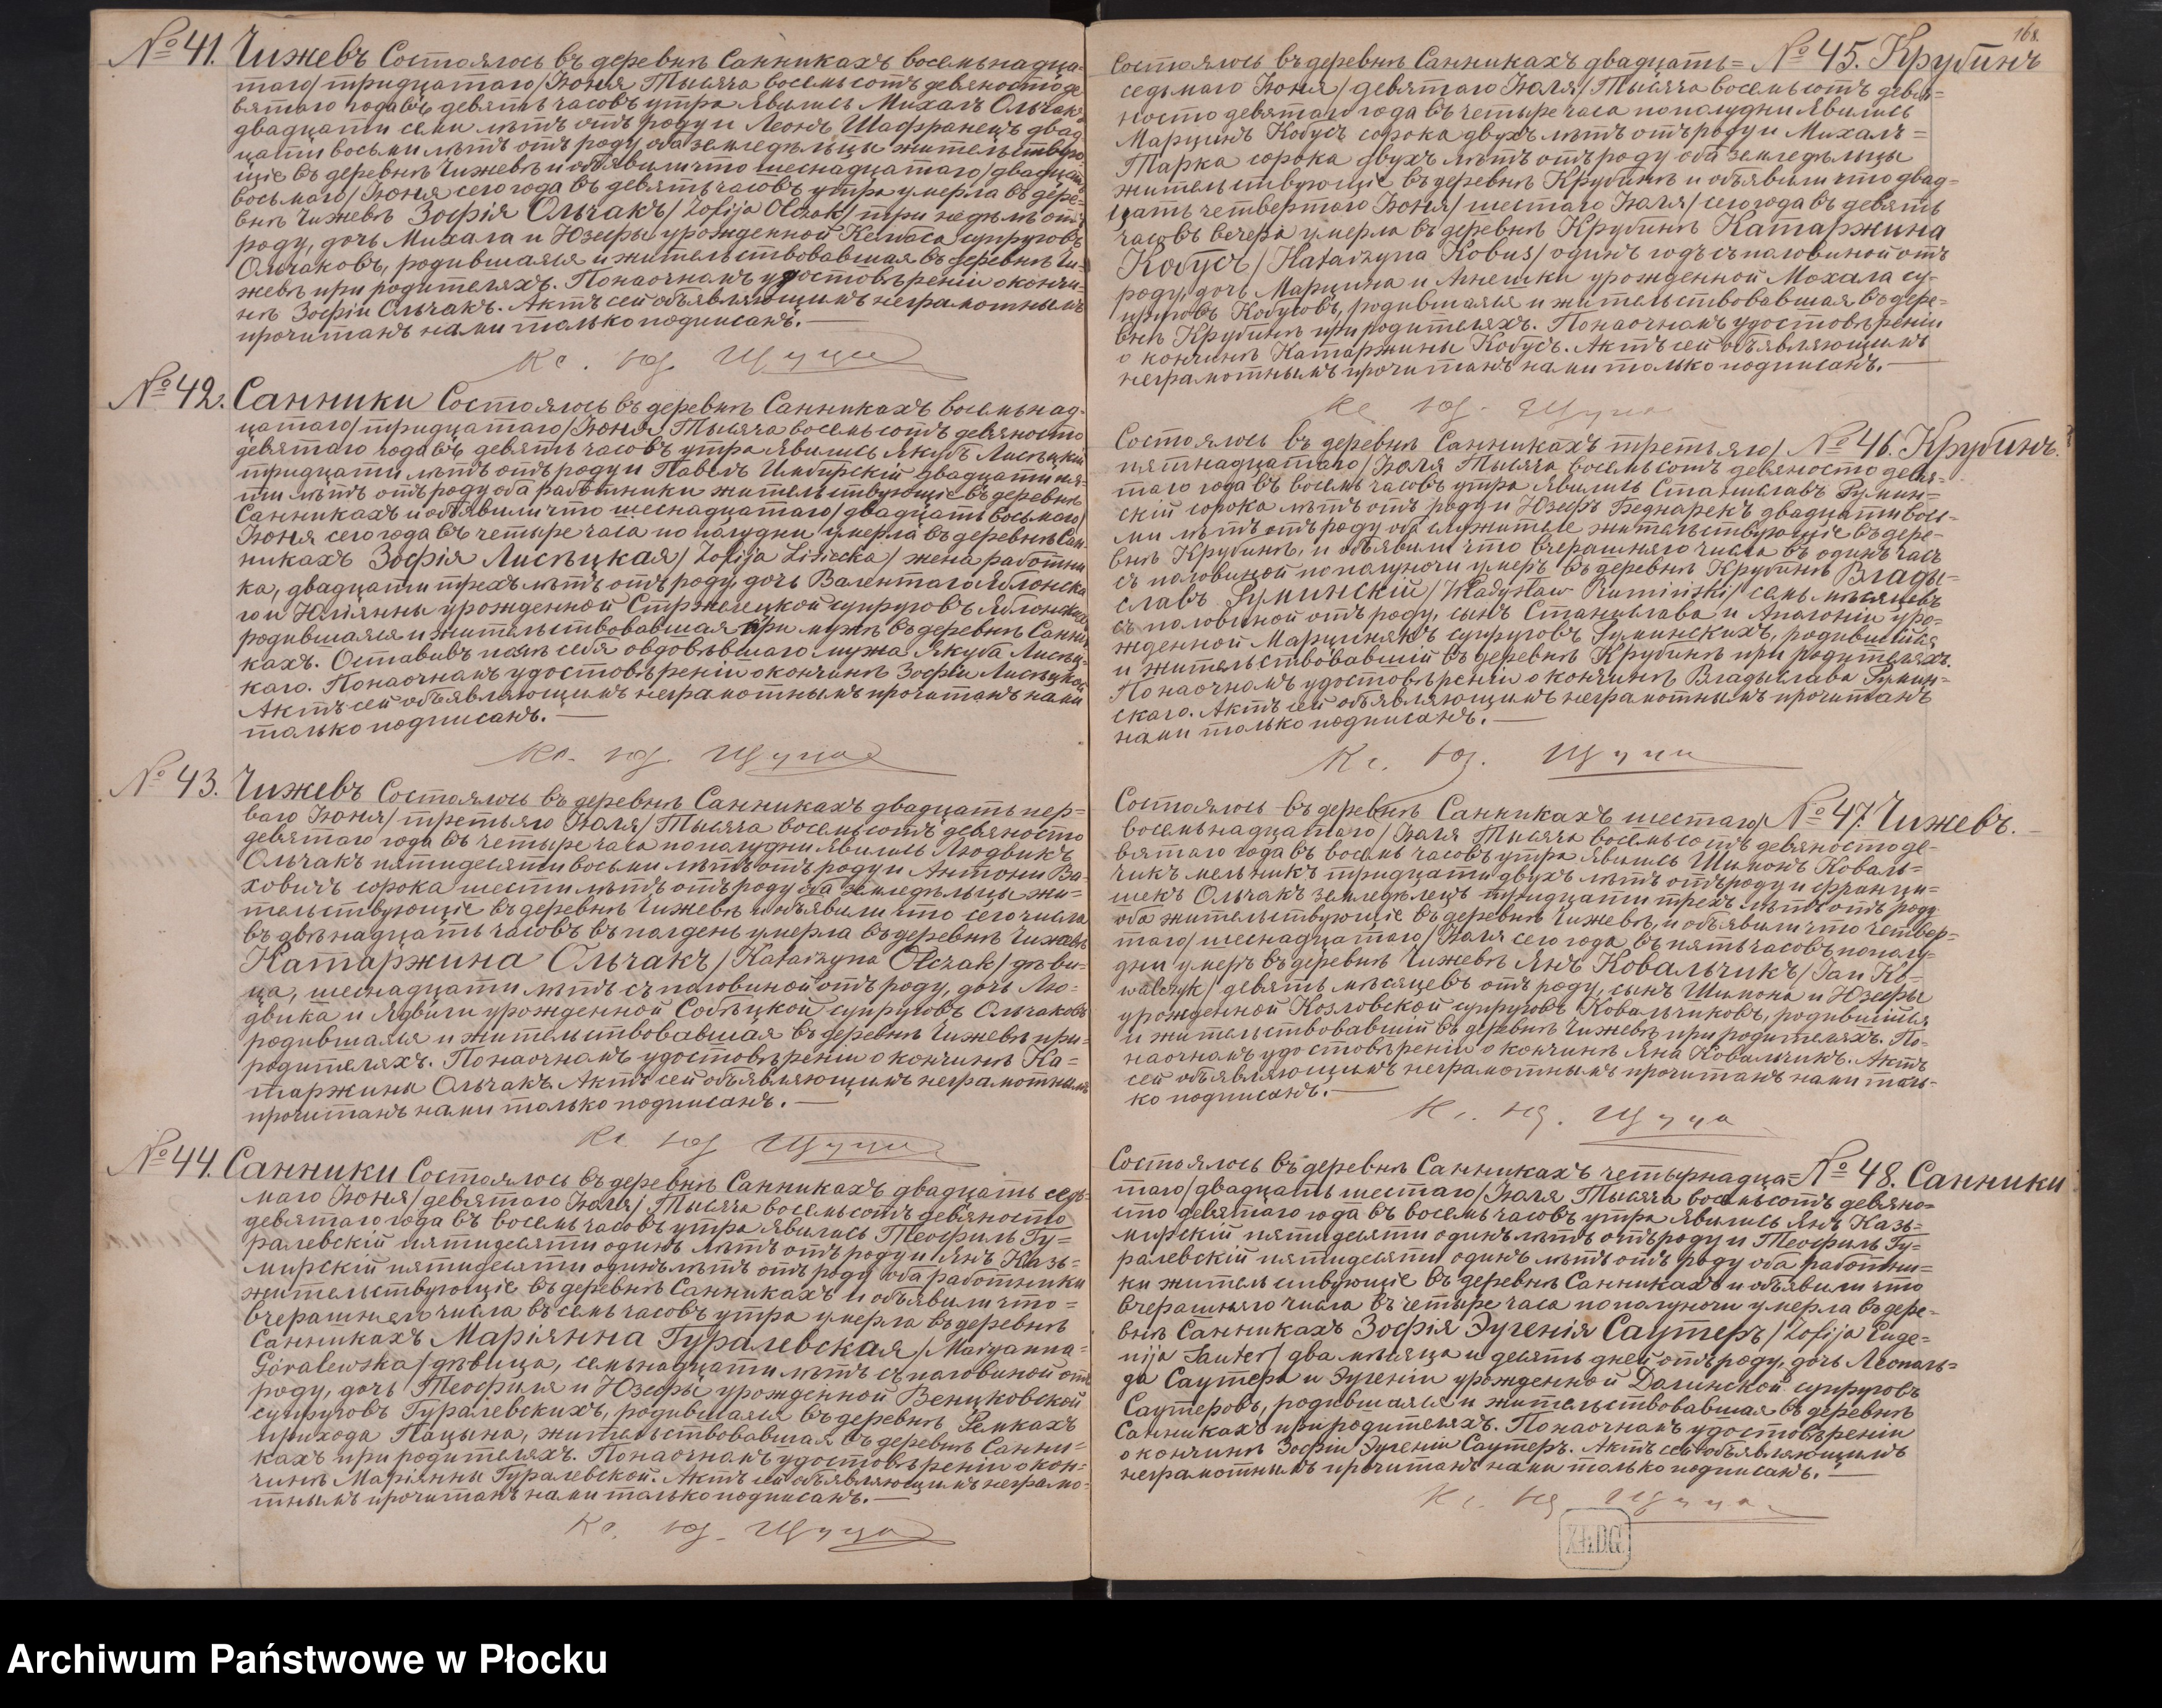 № 41. Чижевъ Состоялось въ деревнѣ Санникахъ восемьнадца-
таго/тридцатаго/Іюня Тысяча восемьсотъ девяностоде
вятаго года въ девять часовъ утра явились Михалъ Ольчакъ
двадцати семи лѣтъ отъ роду и Леонъ Шафранецъ двад
цати восьми лѣтъ отъ роду оба земледѣльцы жительствую
щіе въ деревнѣ Чижевѣ и объявили что шеснадцатаго/двадцать
восьмаго/Іюня сего года въ девять часовъ утра умерла въ дере-
внѣ Чижевѣ Зофія Ольчакъ/Zofija Olczak/три недѣли отъ
роду, дочь Михала и Юзефы урожденной Келбаса супруговъ
Ольчаковъ, родившаяся и жительствовавшая въ деревнѣ Чи-
жевѣ при родителяхъ. Понаочномъ удостовѣреніи о кончи-
нѣ Зофіи Ольчакъ. Актъ сей объявляющимъ неграмотнымъ
прочитанъ нами только подписанъ.—
Кс. Юз. Щуца
№ 42. Санники Состоялось въ деревнѣ Санникахъ восемьнад-
цатаго/тридцатаго/Іюня Тысяча восемьсотъ девяносто
девятаго года въ девять часовъ утра явились Якубъ Лисѣцкій
тридцати лѣтъ отъ роду и Павелъ Имбирскій двадцати пя-
ти лѣтъ отъ роду оба работники жительствующіе въ деревнѣ
Санникахъ и объявили что шеснадцатаго/двадцать восьмаго/
Іюня сего года въ четыре часа по полудни умерла въ деревнѣ Сан
никахъ Зофія Лисѣцкая/Zofija Lisiecka/жена работни
ка, двадцати трехъ лѣтъ отъ роду, дочь Валентаго Яблонска
го и Юліянны урожденной Стржелецкой супруговъ Яблонскихъ
родившаяся и жительствовавшая при мужѣ въ деревнѣ Санни
кахъ. Оставивъ послѣ себя овдовѣвшаго мужа Якуба Лисѣц-
каго. Понаочномъ удостовѣреніи о кончинѣ Зофіи Лисѣцкой
Актъ сей объявляющимъ неграмотнымъ прочитанъ нами
только подписанъ.—
Кс. Юз. Щуца
№ 43. Чижевъ Состоялось въ деревнѣ Санникахъ двадцать пер-
ваго Іюня/третьяго Іюля/Тысяча восемьсотъ девяносто
девятаго года въ четыре часа по полудни явились Людвикъ
Ольчакъ пятидесяти восьми лѣтъ отъ роду и Антони
ховичъ сорока шести лѣтъ отъ роду оба земледѣльцы жи-
тельствующіе въ деревнѣ Чижевѣ и объявили что сего числа
въ двѣнадцать часовъ въ полдень умерла въ деревнѣ Чижевѣ
Катаржина Ольчакъ/Katarzyna Olczak/дѣви-
ца, шеснадцати лѣтъ съ половиной отъ роду, дочь Лю-
двика и Ядвиги урожденной Собѣцкой супруговъ Ольчаковъ
родившаяся и жительствовавшая въ деревнѣ Чижевѣ при-
родителяхъ. Понаочномъ удостовѣреніи о кончинѣ Ка-
таржины Ольчакъ. Актъ сей объявляющимъ неграмотнымъ
прочитанъ нами только подписанъ.—
Кс. Юз. Щуца
№ 44. Санники Состоялось въ деревнѣ Санникахъ двадцать седь-
маго Іюня/девятаго Іюля/Тысяча восемьсотъ девяносто
девятаго года въ восемь часовъ утра явились Теофиль Гу-
ралевскій пятидесяти одинъ лѣтъ отъ роду и Янъ Казь-
мирскій пятидесяти одинъ лѣтъ отъ роду оба работники
жительствующіе въ деревнѣ Санникахъ и объявили что-
вчерашняго числа въ семь часовъ утра умерла въ деревнѣ
Санникахъ Маріянна Гуралевская/Maryanna-
Góralewska/дѣвица, семьнадцати лѣтъ съ половиной отъ
роду, дочь Теофиля и Юзефы урожденной Венцковской
супруговъ Гуралевскихъ, родившаяся въ деревнѣ Сейкахъ
прихода Пацына, жительствовавшая въ деревнѣ Санни-
кахъ при родителяхъ. Понаочномъ удостовѣреніи о кон-
чинѣ Маріянны Гуралевской. Актъ сей объявляющимъ неграмо-
тнымъ прочитанъ нами только подписанъ.—
Кс. Юз. Щуца
168.
Состоялось въ деревнѣ Санникахъ двадцать= № 45. Крубинъ
седьмаго Іюня/девятаго Іюля/Тысяча восемьсотъ девя-
носто девятаго года въ четыре часа по полудни явились
Марцинъ Кобусъ сорока двухъ лѣтъ отъ роду и Михалъ=
Тарка сорока двухъ лѣтъ отъ роду оба земледѣльцы
жительствующіе въ деревнѣ Крубинѣ и объявили что двад-
цать четвертаго Іюня/шестаго Іюля/сего года въ девять
часовъ вечера умерла въ деревнѣ Крубинѣ Катаржина
Кобусъ/Katarzyna Kobus/одинъ годъ съ половиной отъ
роду, дочь Марцина и Агнешки урожденной Мохала су-
пруговъ Кобусовъ, родившаяся и жительствовавшая въ дере-
внѣ Крубинѣ при родителяхъ. Понаочномъ удостовѣреніи
о кончинѣ Катаржины Кобусъ. Актъ сей объявляющимъ
неграмотнымъ прочитанъ нами только подписанъ.—
Кс. Юз. Щуца
Состоялось въ деревнѣ Санникахъ третьяго/ № 46. Крубинъ.
пятнадцатаго/Іюля Тысяча восемьсотъ девяносто девя-
таго года въ восемь часовъ утра явились Станиславъ Румин-
скій сорока лѣтъ отъ роду и Юзефъ Беднарекъ двадцати вось-
ми лѣтъ отъ роду оба служителе жительствующіе въ дере-
внѣ Крубинѣ, и объявили что вчерашняго числа въ одинъ часъ
съ половиной по полуночи умеръ въ деревнѣ Крубинѣ Влады-
славъ Руминскій/Władysław Rumiński/семь мѣсяцевъ
съ половиной отъ роду, сынъ Станислава и Аполоніи уро-
жденной Марциніякъ супруговъ Руминскихъ, родившійся
и жительствовавшій въ деревнѣ Крубинѣ при родителяхъ.
Понаочномъ удостовѣреніи о кончинѣ Владыслава Румин-
скаго. Актъ сей объявляющимъ неграмотнымъ прочитанъ
нами только подписанъ.—
Кс. Юз. Щуца
Состоялось въ деревнѣ Санникахъ шестаго/ № 47. Чижевъ.
восемьнадцатаго/Іюля Тысяча восемьсотъ девяносто де-
вятаго года въ восемь часовъ утра явились Шимонъ Коваль-
чикъ мельникъ тридцати двухъ лѣтъ отъ роду и Франци-
шекъ Ольчакъ земледѣлецъ тридцати трехъ лѣтъ отъ роду
оба жительствующіе въ деревнѣ Чижевѣ, и объявили что четвер-
таго/шеснадцатаго/Іюля сего года въ пять часовъ по полу-
дни умеръ въ деревнѣ Чижевѣ Янъ Ковальчикъ/Jan Ko-
walczyk/девять мѣсяцевъ отъ роду, сынъ Шимона и Юзефы
урожденной Козловской супруговъ Ковальчиковъ, родившійся
и жительствовавшій въ деревнѣ Чижевѣ при родителяхъ. По-
наочномъ удостовѣреніи о кончинѣ Яна Ковальчикъ. Актъ
сей объявляющимъ неграмотнымъ прочитанъ нами толь-
ко подписанъ.—
Кс. Юз. Щуца
Состоялось въ деревнѣ Санникахъ четырнадца= № 48. Санники
таго/двадцать шестаго/Іюля Тысяча восемьсотъ девяно-
сто девятаго года въ восемь часовъ утра явились Янъ Казь-
мирскій пятидесяти одинъ лѣтъ отъ роду и Теофиль Гу-
ралевскій пятидесяти одинъ лѣтъ отъ роду оба работни-
ки жительствующіе въ деревнѣ Санникахъ и объявили что
вчерашняго числа въ четыре часа по полуночи умерла въ дере-
внѣ Санникахъ Зофія Эугенія Саутеръ/Zofija Euge-
nija Sauter/два мѣсяца и девять дней отъ роду, дочь Леополь-
да Саутера и Эугеніи урожденной Долинской супруговъ
Саутеровъ, родившаяся и жительствовавшая въ деревнѣ
Санникахъ при родителяхъ. Понаочномъ удостовѣреніи
о кончинѣ Зофіи Эугеніи Саутеръ. Актъ сей объявляющимъ
неграмотнымъ прочитанъ нами только подписанъ.—
Кс. Юз. Щуца
Archiwum Państwowe w Płocku